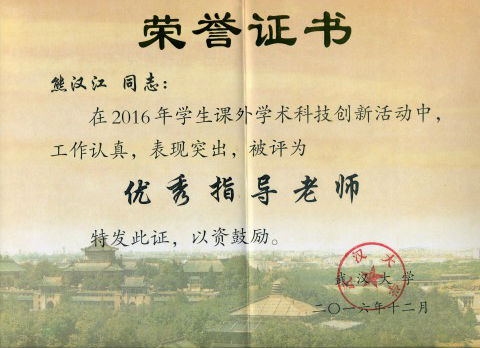 荣誉证书
熊汉江 同志：
在2016年学生课外学术科技创新活动中，
工作认真，表现突出，被评为
优秀指导老师
特发此证，以资鼓励。
武汉大学
二〇一六年十二月